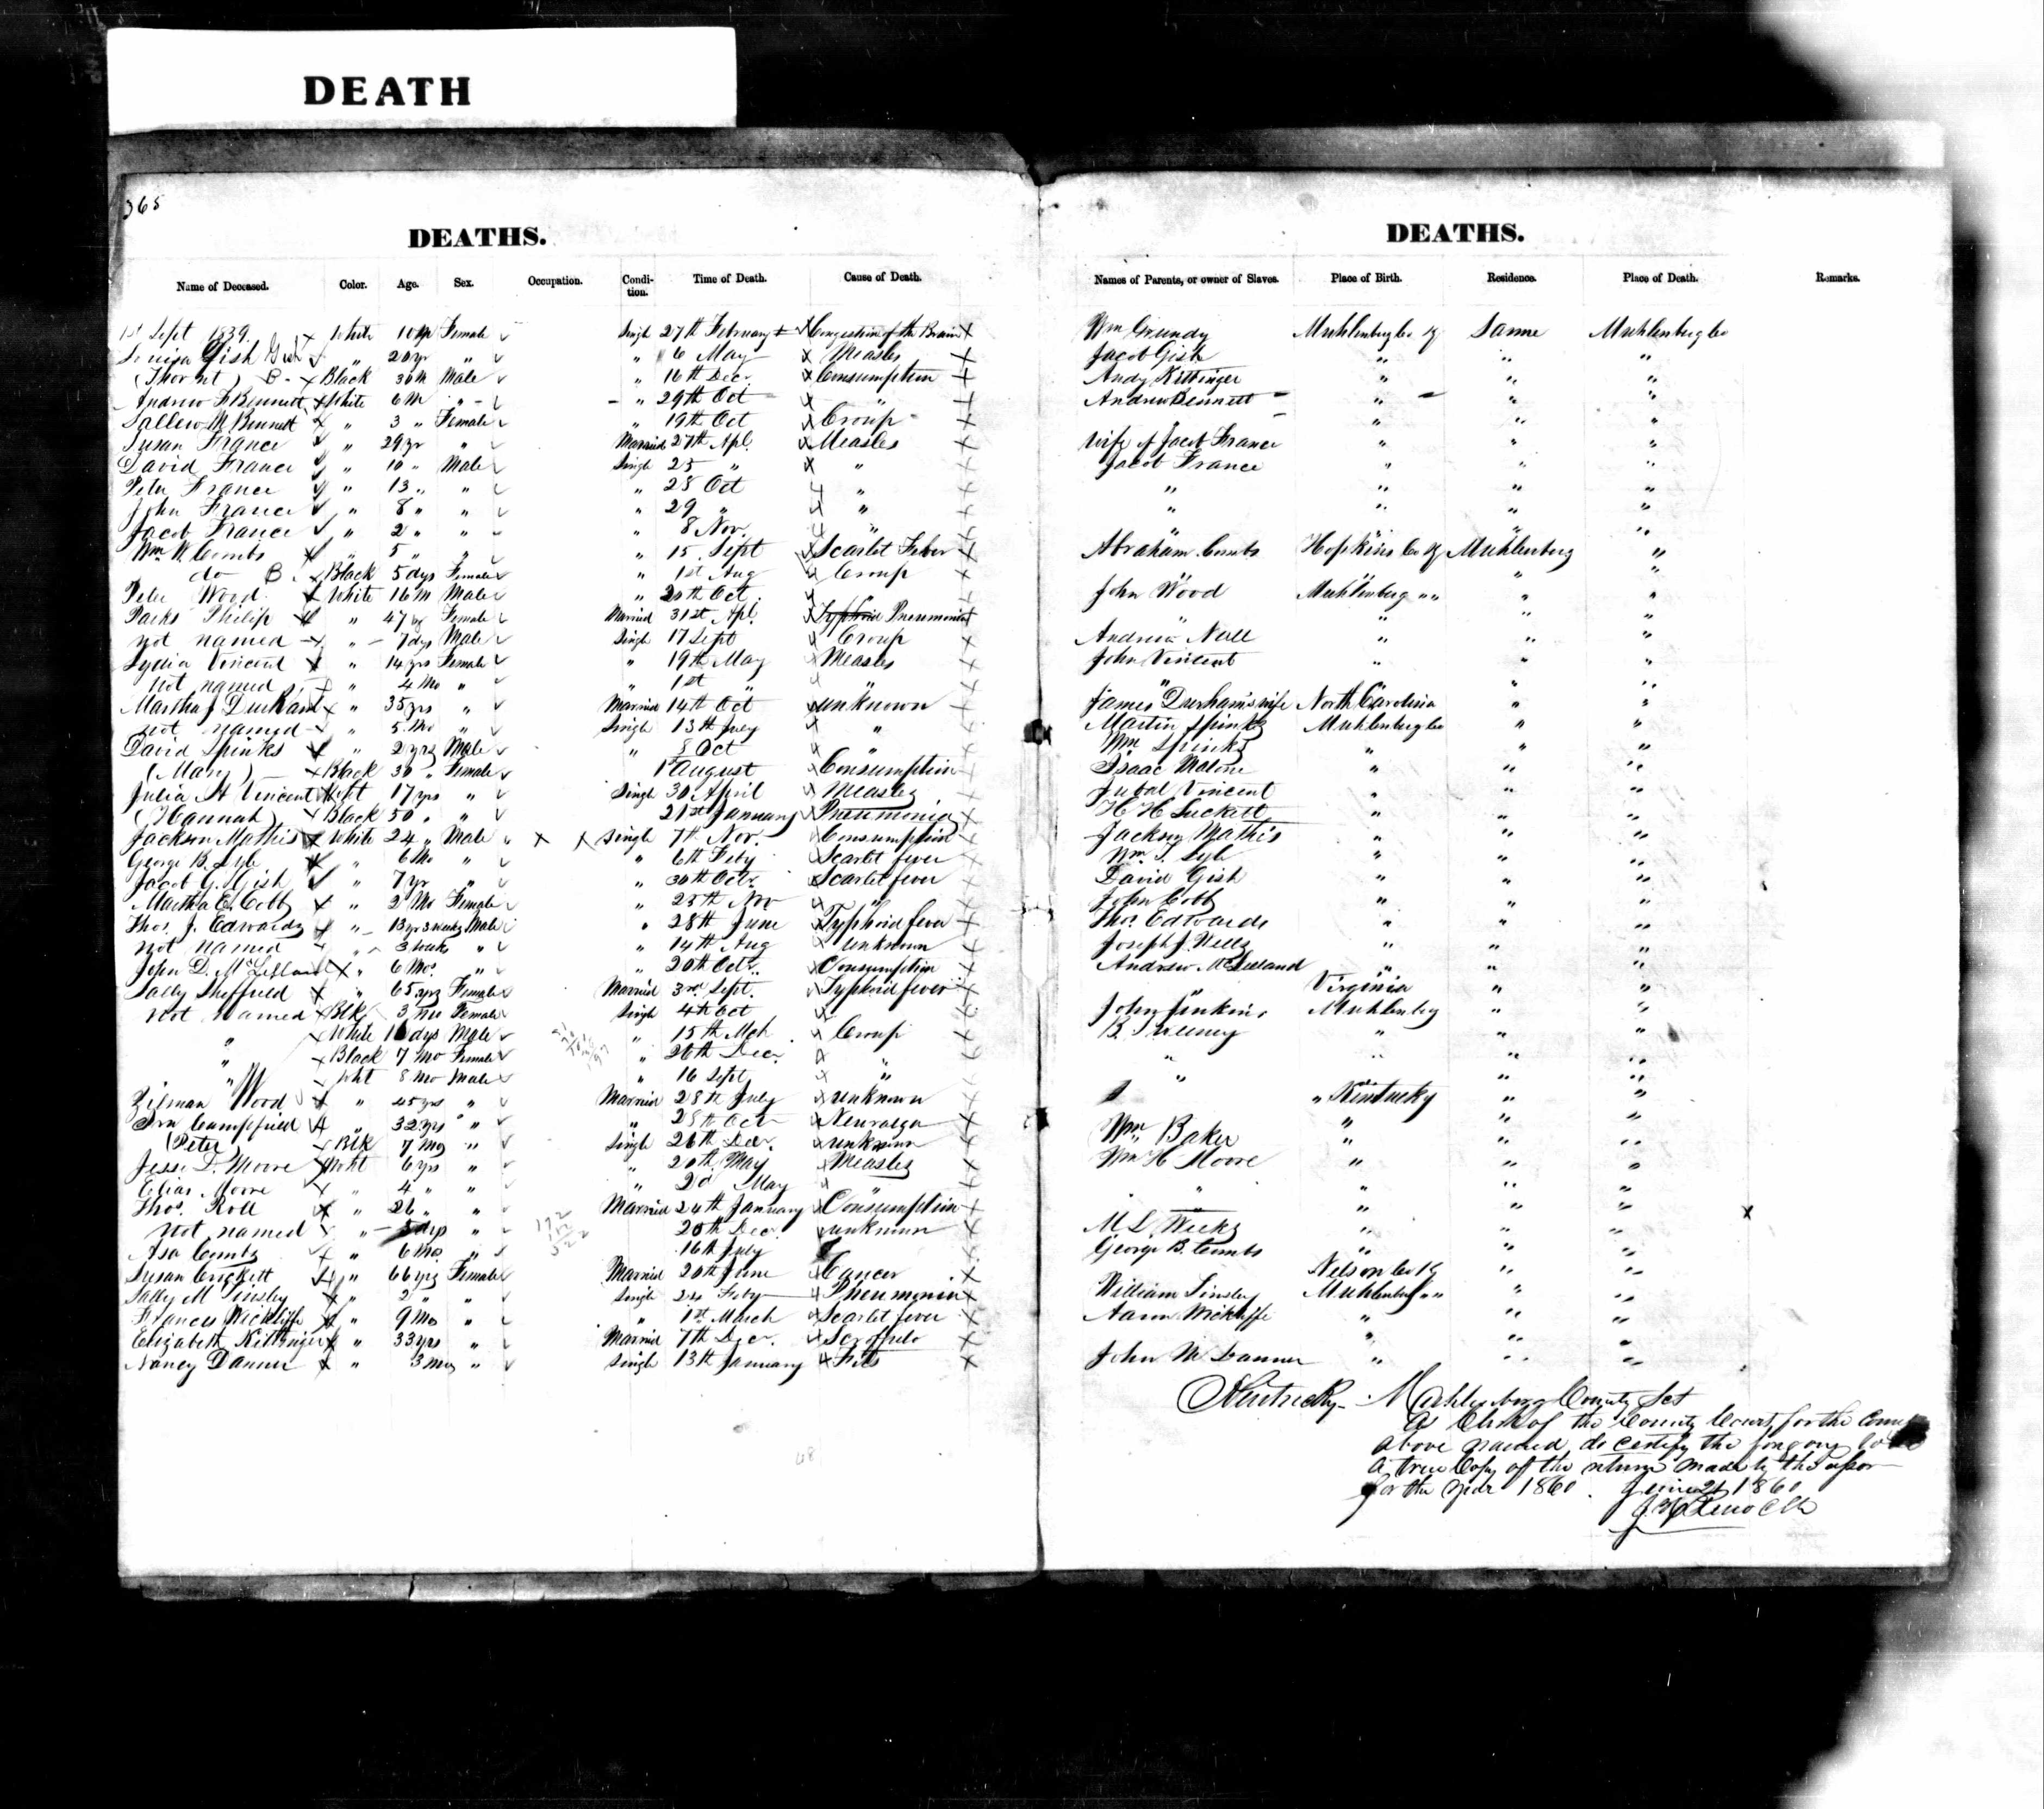 DEATH
365
DEATHS.
Name of Deceased. Color. Age. Sex. Occupation. Condi-tion. Time of Death. Cause of Death.
1st Sept 1839. White Female Single 27th February Congestion of the Brain
Louisa Gish Gish " 20 yr " " 6 May Measles
(Thornt) B. Black 30 Male " 16th Dec. Consumption
Andrew F Bennett White 6 M " " 29th Oct "
Sallew M Bennett " 3 " Female " 19th Oct Croup
Susan France " 29 yr " Married 27th Apl. Measles
David France " 10 " Male Single 25 " "
Peter France " 13 " " " 28 Oct "
John France " 8 " " " 29 " "
Jacob France " 2 " " " 8 Nov. "
Wm W. Combs " 5 " " " 15 Sept Scarlet Fever
do B. Black 5 dys Female " 1st Aug Croup
Peter Wood White 16 M Male " 20th Oct. "
Parks Philip " 47 Female Married 31st Apl. Typhoid Pneumonia
not named " 7 dys Male Single 17 Sept Croup
Lydia Vincent " 14 yrs Female " 19th May Measles
not named " 4 Mo " " 1st " "
Martha J Durham " 35 yrs " Married 14th Oct unknown
not named " 5 Mo " Single 13th July "
David Spinks " 2 yrs Male " 8 Oct "
(Mary) Black 30 " Female 1st August Consumption
Julia A Vincent Wht 17 yrs " Single 30 April Measles
(Hannah) Black 50 " " 21st January Pneumonia
Jackson Mathis White 24 " Male Single 7th Nov. Consumption
George B. Lyle " 6 Mo " " 6th Feby Scarlet fever
Jacob G. Gish " 7 yr " " 30th Octr. Scarlet fever
Martha E. Cobb " 2 Mo Female " 25th Nov "
Thos. J. Edwards " 13 yr 3 weeks Male " 28th June Typhoid fever
not named " 3 weeks " " 14th Aug unknown
John D. McLelland " 6 Mo. " " 20th Octr. Consumption
Sally Sheffield " 65 yrs Female Married 3rd Sept. Typhoid fever
not named Blk 3 Female Single 4th Oct "
" White dys Male " 15th Mch Croup
" Black 7 Mo Female " 26th Dec. "
" Wht 8 Mo Male " 16 Sept "
Wood " 45 yrs " Married 28th July unknown
Campfield " 32 yrs " " 28th Oct
(Peter Blk 7 Mo " Single 26th Dec. unknown
Jesse D. Moore Wht 6 yrs " " 20th May Measles
Elias Moore " 4 " " " 2d May "
Thos. Roll " 26 " " Married 24th January Consumption
not named " 5 dys " 20th Dec. unknown
Asa Combs " 6 Mo " 16th July
Susan Crockett " 66 yrs Female Married 20th June Cancer
Sally M Tinsley " 2 " " Single 24 Feby Pneumonia
Frances Wickliffe " 9 Mo " " 1st March Scarlet fever
Elizabeth Kittinger " 33 yrs " Married 7th Dec. Scroffulo
Nancy Danner " 3 Mo " Single 13th January Fits
48
DEATHS.
Names of Parents, or owner of Slaves. Place of Birth. Residence. Place of Death. Remarks.
Wm Grundy Muhlenburg Co Ky Same Muhlenburg Co
Jacob Gish " " "
Andy Kittinger " " "
Andrew Bennett " " "
" " "
Wife of Jacob France " " "
Jacob France " " "
" " " "
" " " "
" " " "
Abraham Combs Hopkins Co Ky Muhlenburg "
" " "
John Wood Muhlenburg " " " "
" " "
Andrew Nall " " "
John Vincent " " "
" " " "
James Durham's wife North Carolina " "
Martin Spinks Muhlenburg Co " "
Wm Spinks " " "
Isaac Malone " " "
Jubal Vincent " " "
H H Luckett " " "
Jackson Mathis " " "
Wm. S. Lyle " " "
David Gish " " "
John Cobb " " "
Thos Edwards " " "
Joseph J. Wells " " "
Andrew McLelland " " "
Virginia " "
John Jinkins Muhlenburg " "
B. " " "
" " " "
" " "
" Kentucky " "
" " "
Wm Baker " " "
Wm H Moore " " "
" " " "
" " "
M L. Weeks " " "
George B. Combs " " "
Nelson Co Ky " "
William Tinsley Muhlenburg " " " "
Aaron Wickliffe " " "
" " "
John M Danner " " "
Kentucky Muhlenburg County Sct
As Clerk of the County Court, for the County
above named, do certify the foregoing to be
a true Copy of the return made by the assor
for the year 1860. June 21 1860